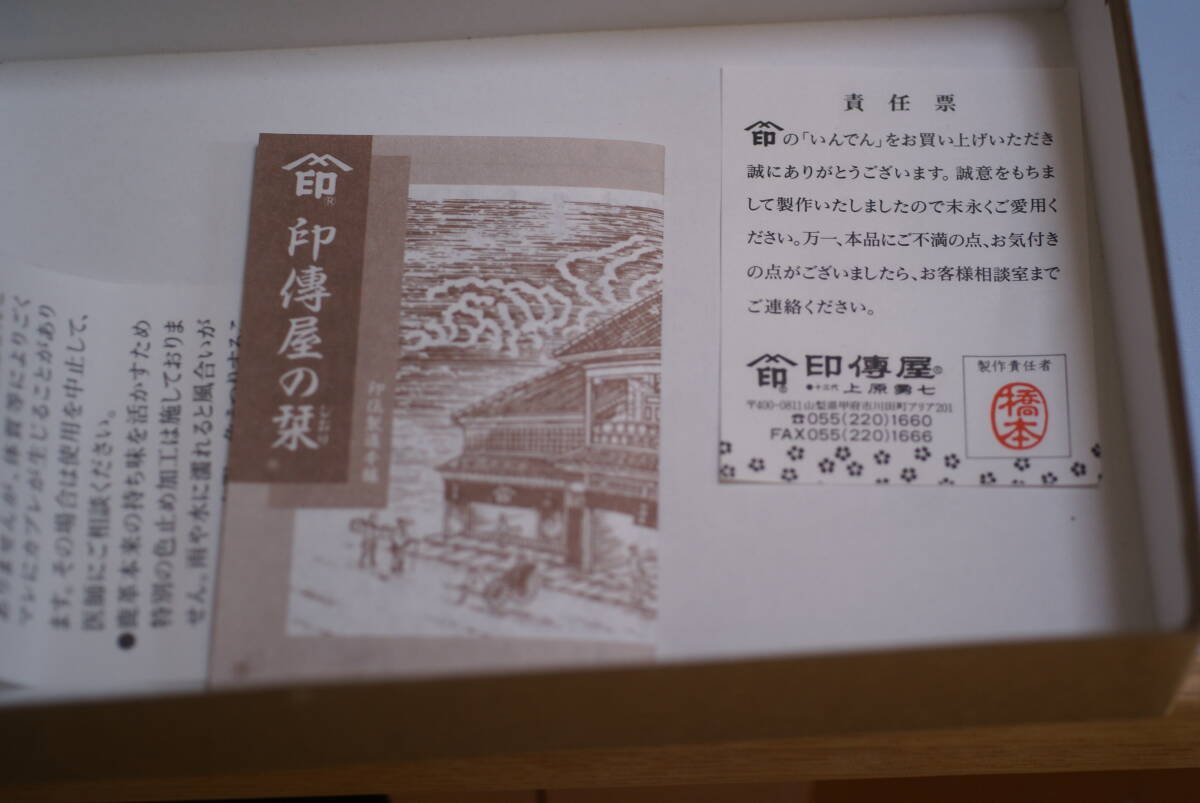 責任票
印の「いんでん」をお買い上げいただき
誠にありがとうございます。誠意をもちま
して製作いたしましたので末永くご愛用く
ださい。万一、本品にご不満の点、お気付き
の点がございましたら、お客様相談室まで
ご連絡ください。
印® 印傳屋®
●十三代 上原勇七
〒400-0811山梨県甲府市川田町アリア201
☎055(220)1660
FAX055(220)1666
製作責任者
橋本
印®
印傳屋の栞
しおり
マレにカブレが生じることがあり
ます。その場合は使用を中止して、
医師にご相談ください。
●鹿革本来の持ち味を活かすため
特別の色止め加工は施しておりま
せん。雨や水に濡れると風合いが